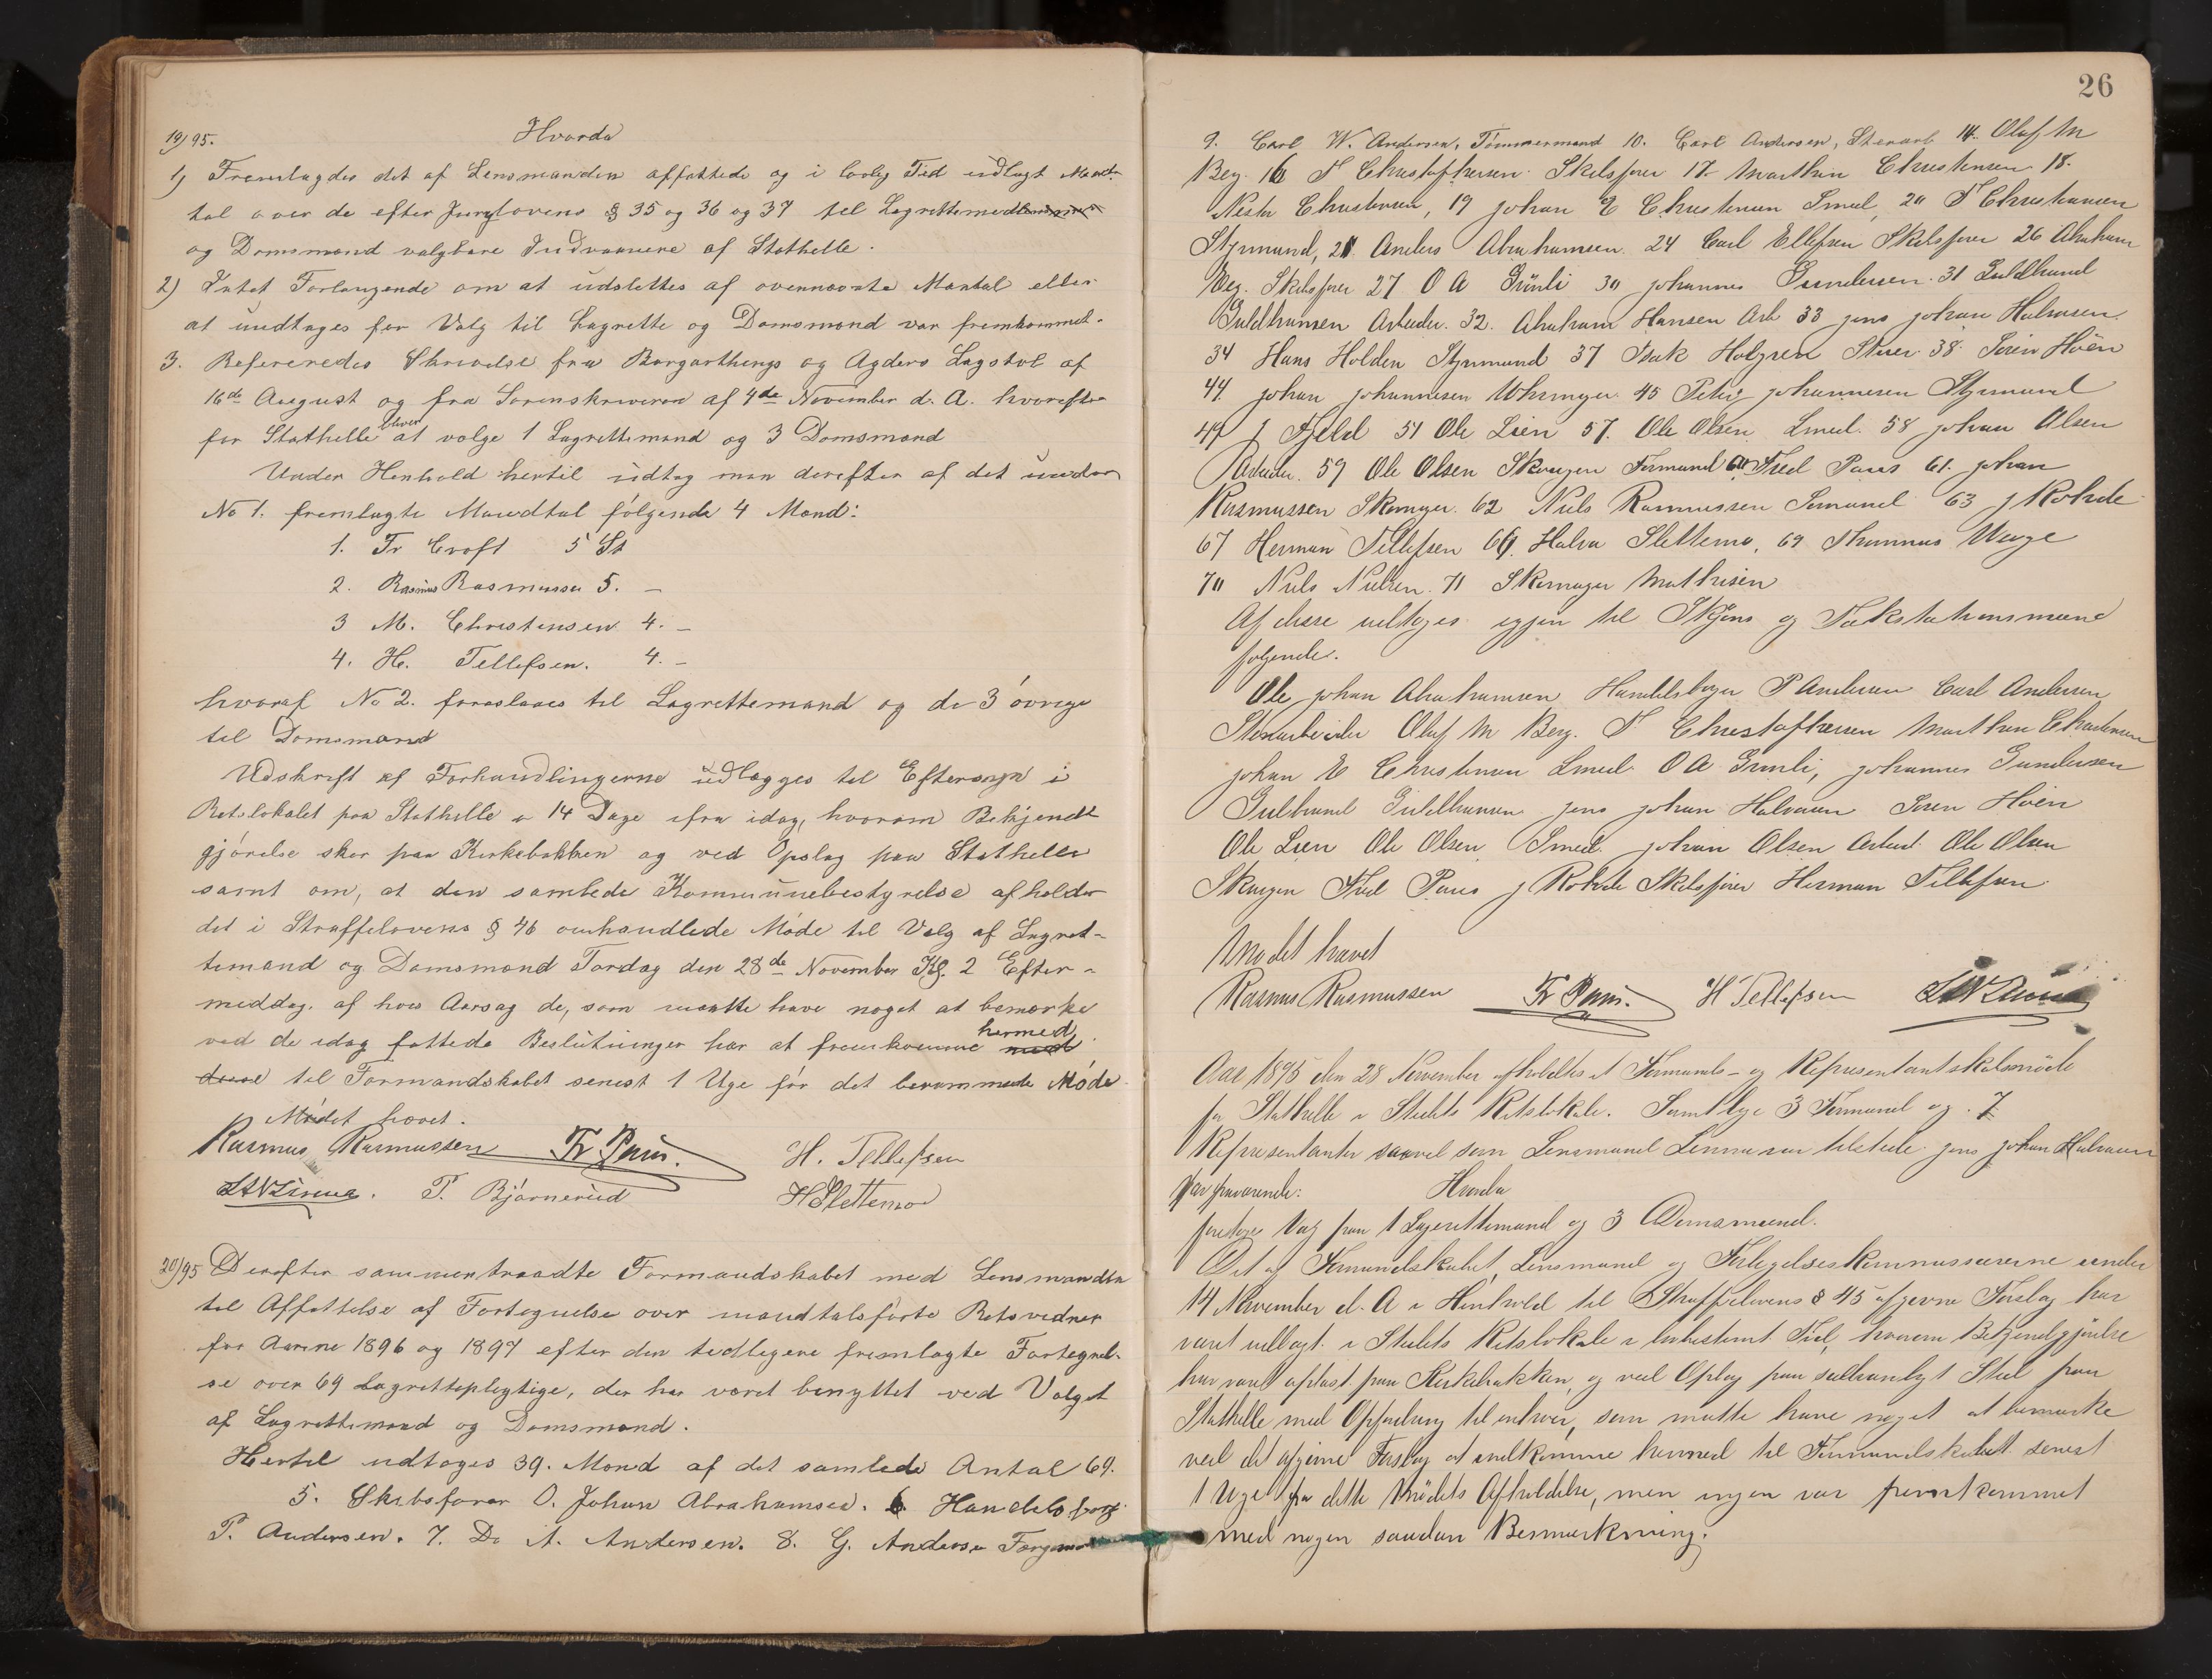 19/95. Hvorda
1) Fremlagdes det af Lensmanden affattede og i lovlig Tid udlagt Mand-
tal over de efter Jurylovens § 35 og 36 og 37 til Lagrettemedlemmer
og Domsmænd valgbare Indvaanere af Stathelle.
2) Intet Forlangende om at udslettes af ovennævnte Mantal eller
at undtages for Valg til Lagrette og Domsmænd var fremkommet.
3. Refereredes Skrivelse fra Borgarthings og Agders Lagstol af
16de August og fra Sorenskriveren af 4de November d. A. hvorefter
for Stathelle bliver at vælge 1 Lagrettemand og 3 Domsmænd
Under Henhold hertil udtog man derefter af det under
No 1. fremlagte Mandtal følgende 4 Mænd:
1. Fr Croft 5 St
2. Rasmus Rasmussen 5. —
3 M. Christensen 4. —
4. H. Tellefsen. 4. —
hvoraf No 2. foreslaaes til Lagrettemand og de 3 øvrige
til Domsmænd
Udskrift af Forhandlingerne udlægges til Eftersyn i
Retslokalet paa Stathelle i 14 Dage ifra idag, hvorom Bekjendt
gjørelse sker paa Kirkebakken og ved Opslag paa Stathelle
samt om, at den samlede Kommunebestyrelse afholder
det i Straffelovens § 46 omhandlede Møde til Valg af Lagret-
temænd og Domsmænd Torsdag den 28de November Kl. 2 Efter-
middag. af hvis Aarsag de, som maatte have noget at bemærke
ved de idag fattede Beslutninger har at fremkomme hermed
til Formandskabet senest 1 Uge før det berammede Møde.
Mødet hævet.
Rasmus Rasmussen Fr Paus. H. Tellefsen
P. Bjørnerud H Slettemo
20/95 Derefter sammentraadte Formandskabet med Lensmanden
til Affattelse af Fortegnelse over mandtalsførte Retsvidner
for Aarene 1896 og 1897 efter den tidligere fremlagte Fortegnel-
se over 69 Lagrettepligtige, der har været benyttet ved Valget
af Lagrettemænd og Domsmænd.
Hertil udtoges 39. Mænd af det samlede Antal 69.
5. Skibsfører O. Johan Abrahamsen. 6 Handelsborg
P. Andersen. 7. Do A. Andersen. 8. G. Andersen
26
9. Carl W. Andersen, Tømmermand 10. Carl Andersen, Stenarb 14. Olaf M
Berg. 16 T Christophersen Skibsfører 17 Marthin Christensen 18.
Christensen, 19 Johan E Christensen Smed, 20 T Christensen
Styrmand, 21 Anders Abrahamsen 24 Carl Ellefsen Skibsfører 26 Abraham
Berg. Skibsfører 27 O A Grünli 30 Johannes Gundersen. 31 Guldbrand
Guldbransen Arbeider. 32. Abraham Hansen Arb 33 Jens Johan Halvorsen.
34 Hans Holden Styrmand 37 Isak Holgren 38 Søren Høen
44. Johan Johannesen Uhrmager 45 Peter Johannesen Styrmand
49 J Fjeld 51 Ole Lien 57. Ole Olsen Smed. 58 Johan Olsen
Arbeider. 59 Ole Olsen Formand 60 Fred Paus 61. Johan
Rasmussen Skomager. 62 Niels Rasmussen Sømand 63 J Rohde
67 Herman Tellefsen 66. Halvor Slettemo, 69 Thomas Wauge
70 Niels Nielsen. 71 Skomager Mathisen
Af disse udtoges igjen til Skjøns og Takstationsmænd
følgende.
Ole Johan Abrahamsen Handelsborger P Andersen Carl Andersen
Stenarbeider Olaf M Berg. T Christophersen Marthin Christensen
Johan E Christensen Smed O A Grünli, Johannes Gundersen
Guldbrand Guldbransen Jens Johan Halvorsen Søren Høen
Ole Lien Ole Olsen Smed Johan Olsen Arbeid. Ole Olsen
Fred Paus J Rohde Skibsfører Herman Tellefsen
Mødet hævet
Rasmus Rasmussen Fr Paus. H Tellefsen
Aar 1895 den 28 November afholdtes et Formands- og Representantskabsmøde
for Stathelle i Stedets Retslokale. Samtlige 3 Formænd og 7
Representanter saavel som Lensmand var tilstede Jens Johan Halvorsen
var fraværende: Hvorda
foretoges Valg paa 1 Lagrettemand og 3 Domsmænd.
Det af Formandskabet, Lensmand og Forligelseskommissærerne under
14 November d. A i Henhold til Straffelovens § 45 afgivne Forslag har
været udlagt i Stedets Retslokale i lovbestemt Tid, hvorom Bekjendtgjørelse
har været oplæst paa Kirkebakken, og ved Opslag paa sædvanligt Sted paa
Stathelle med Opfordring til enhver, som maatte have noget at bemærke
ved det afgivne Forslag at indkomme hermed til Formandskabet senest
1 Uge før dette Mødets Afholdelse, men ingen var fremkommet
med nogen saadan Bemærkning.